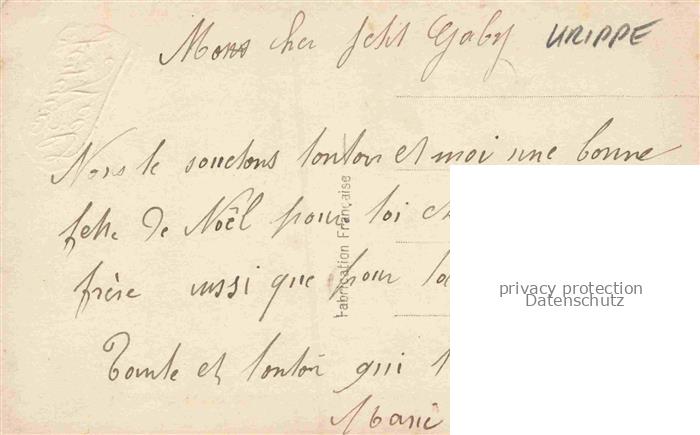 Mon cher petit Gaby
URIPPE
Nous te souetons tonton et moi une bonne
fette de Noël pour toi et
frère aussi que pour
Tante et tonton qui
Marie
Fabrication Française
privacy protection
Datenschutz